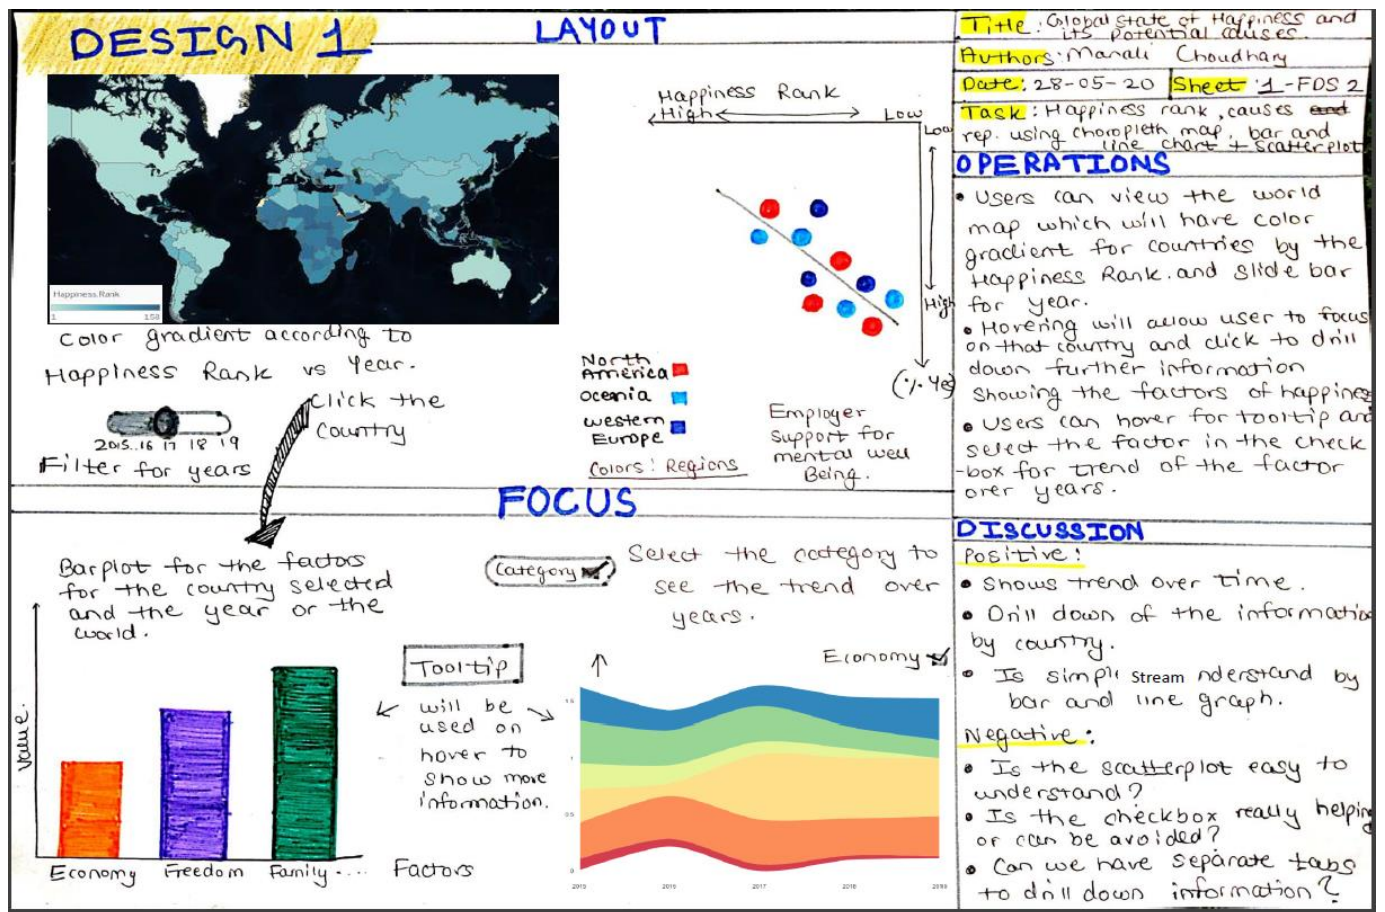 DESIGN 1
LAYOUT
Happiness.Rank
1
158
Color gradient according to
Happiness Rank vs Year.
2015..16 17 18 19
Filter for years
Click the
Country
Happiness Rank
High
Low
Low
High
(% Yes)
North
America
Oceania
Western
Europe
Colors: Regions
Employer
Support for
mental well
Being.
FOCUS
Barplot for the factors
for the country selected
and the year or the
world.
value.
Economy
Freedom
Family....
Factors
Category
Select the category to
see the trend over
years.
Tooltip
will be
used on
hover to
show more
information.
Economy
1.5
1
0.5
0
2015
2016
2017
2018
2019
Title: Global state of Happiness and
its potential causes.
Authors: Manali Choudhary
Date: 28-05-20
Sheet: 1-FDS 2
Task: Happiness rank, causes and
rep. using choropleth map, bar and
line chart + scatterplot
OPERATIONS
• Users can view the world
map which will have color
gradient for countries by the
Happiness Rank. and slide bar
for year.
• Hovering will allow user to focus
on that country and click to drill
down further information
showing the factors of happines
• Users can hover for tooltip and
select the factor in the check
-box for trend of the factor
over years.
DISCUSSION
Positive:
• Shows trend over time.
• Drill down of the information
by country.
• Is simpl Stream nderstand by
bar and line graph.
Negative:
• Is the scatterplot easy to
understand?
• Is the checkbox really helping
or can be avoided?
• Can we have separate tabs
to drill down information?